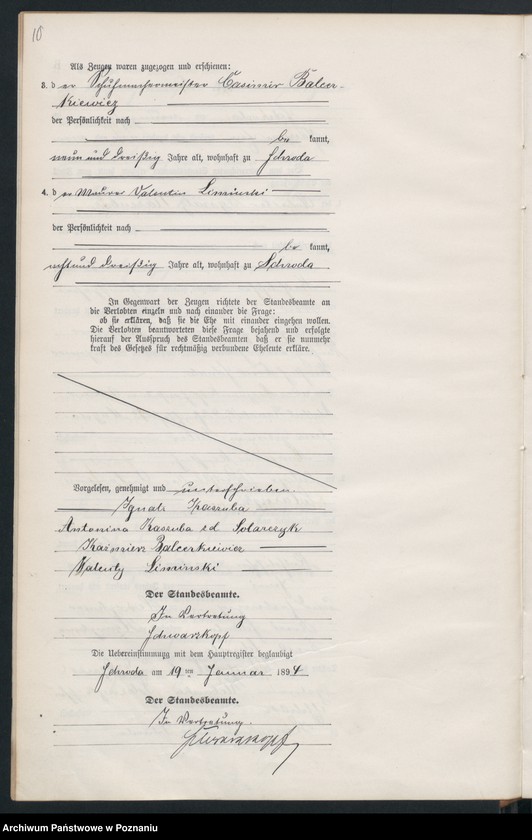 10
Als Zeugen waren zugezogen und erschienen:
3. der Schuhmachermeister Casimir Balcer-
kiewicz
der Persönlichkeit nach
be kannt,
neun und dreißig Jahre alt, wohnhaft zu Schroda
4. der Maurer Valentin Siminski
der Persönlichkeit nach
be kannt,
acht und dreißig Jahre alt, wohnhaft zu Schroda
In Gegenwart der Zeugen richtete der Standesbeamte an
die Verlobten einzeln und nach einander die Frage:
ob sie erklären, daß sie die Ehe mit einander eingehen wollen.
Die Verlobten beantworteten diese Frage bejahend und erfolgte
hierauf der Ausspruch des Standesbeamten, daß er sie nunmehr
kraft des Gesetzes für rechtmäßig verbundene Eheleute erkläre.
Vorgelesen, genehmigt und unterschrieben
Ignatz Kaszuba
Antonina Kaszuba zd Solarczyk
Kaźmierz Balcerkiewicz
Walenty Siminski
Der Standesbeamte.
In Vertretung
Schwarzkopf
Die Uebereinstimmung mit dem Hauptregister beglaubigt
Schroda am 19 ten Januar 1894
Der Standesbeamte.
In Vertretung.
Schwarzkopf
Archiwum Państwowe w Poznaniu